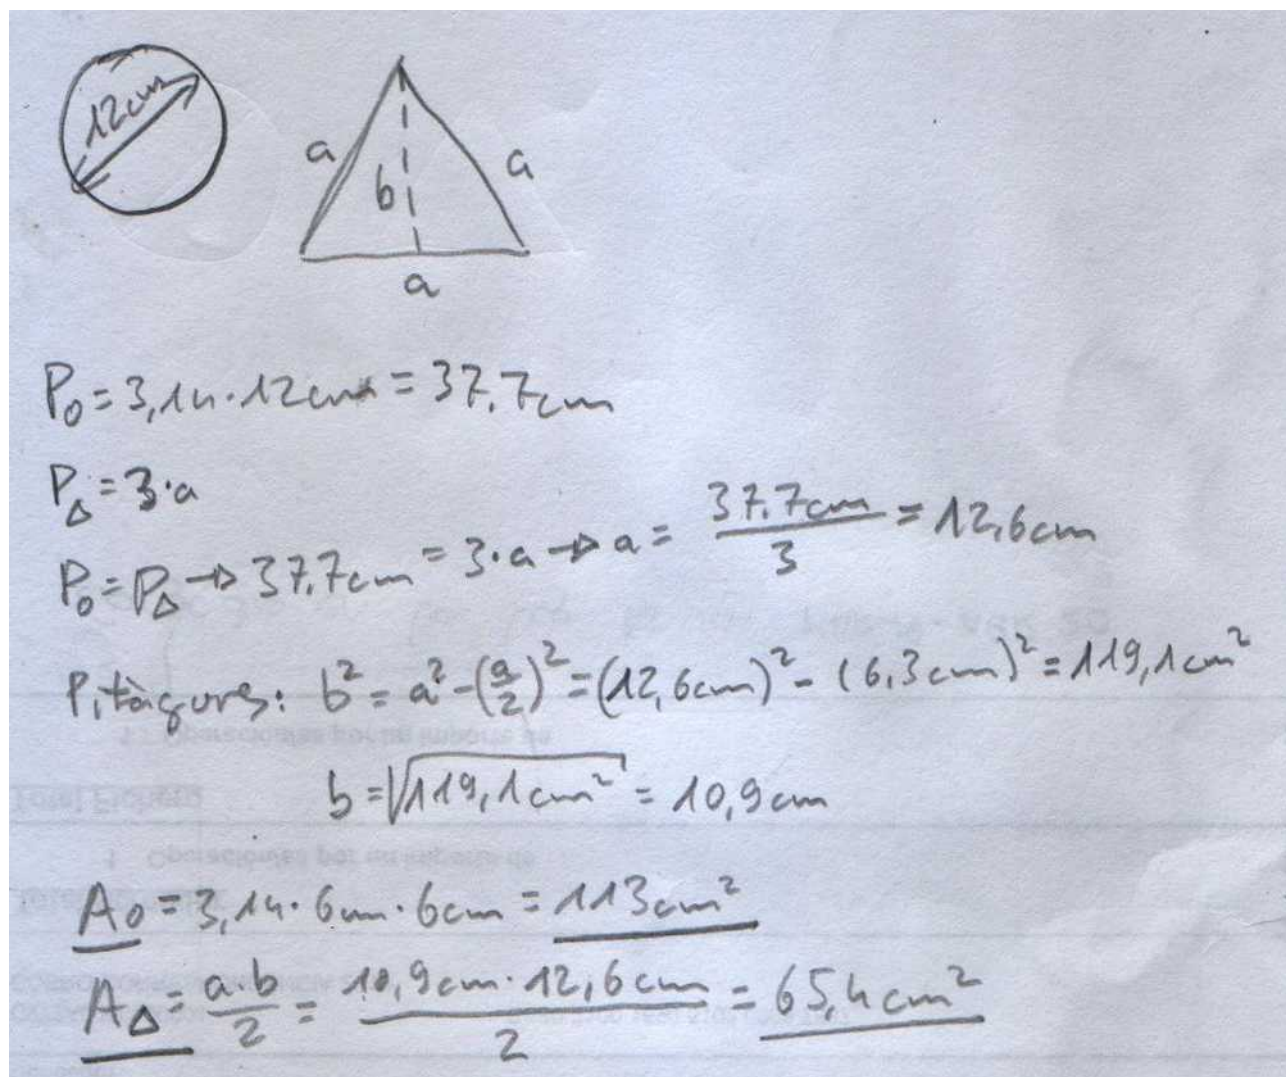 12cm
a
b
a
a
P₀ = 3,14 · 12cm = 37,7cm
P△ = 3 · a
P₀ = P△ → 37,7cm = 3 · a → a = 37,7cm / 3 = 12,6cm
Pitàgores: b² = a² - (a/2)² = (12,6cm)² - (6,3cm)² = 119,1cm²
b = √119,1cm² = 10,9cm
A₀ = 3,14 · 6cm · 6cm = 113cm²
A△ = a·b / 2 = 10,9cm · 12,6cm / 2 = 65,4cm²